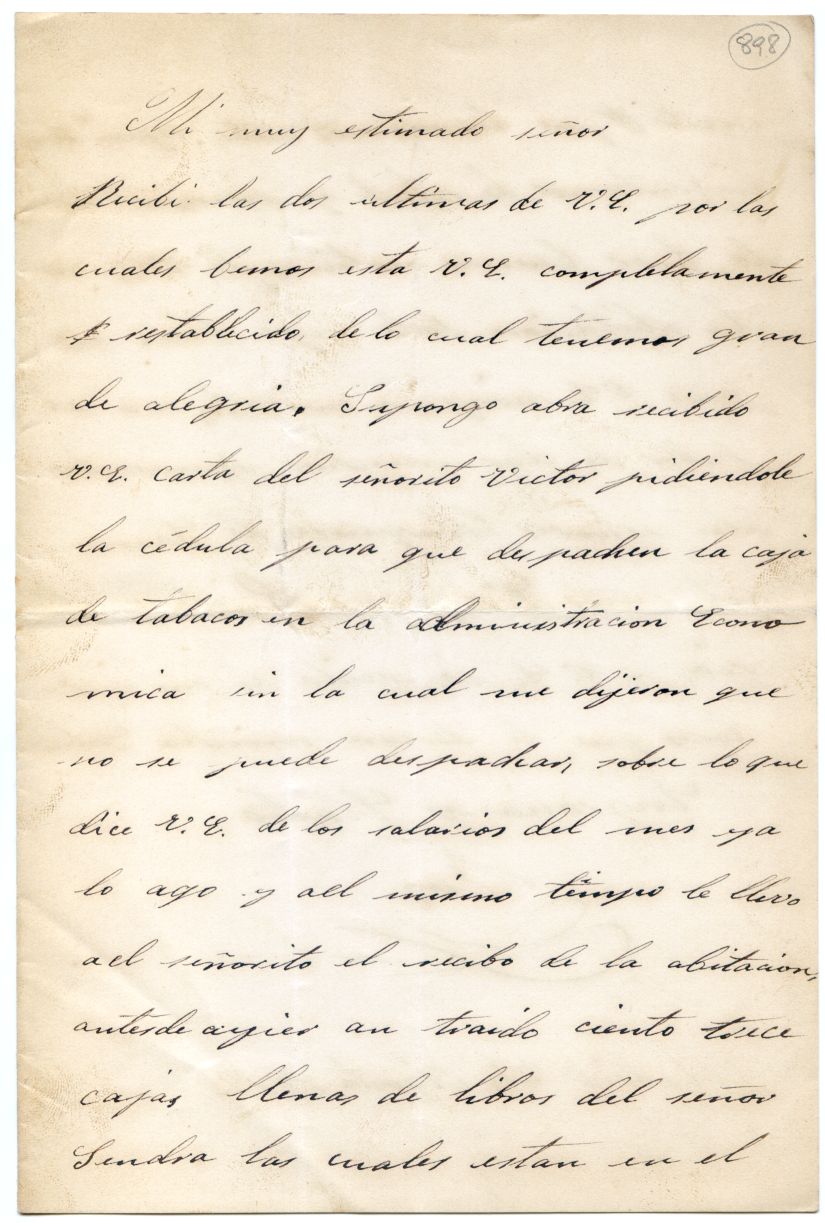 898
Mi muy estimado señor
Recibi las dos ultimas de V.E. por las
cuales bemos esta V.E. completamente
restablecido, de lo cual tenemos gran
de alegria. Supongo abra recibido
V.E. carta del señorito Victor pidiendole
la cédula para que despachen la caja
de tabacos en la administracion Econo
mica sin la cual me dijeron que
no se puede despachar, sobre lo que
dice V.E. de los salarios del mes ya
lo ago y ael mismo tiempo le llevo
ael señorito el recibo de la abitacion,
antesde ayier an traido ciento trece
cajas llenas de libros del señor
Sendra las cuales estan en el